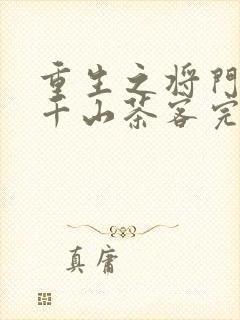 重生之将門
千山茶客完
真庸